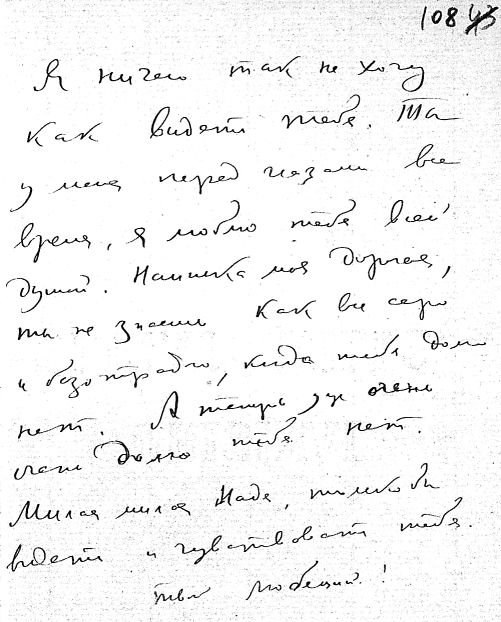 108 43
Я ничего так не хочу
как видеть тебя. Ты
у меня перед глазами все
время, я люблю тебя всей
душой. моя дорогая,
ты не знаешь как все серо
и безотрадно, когда тебя дома
нет. А теперь уж очень
очень долго тебя нет.
Милая милая Надя, только бы
видеть и чувствовать тебя.
твой любящий!